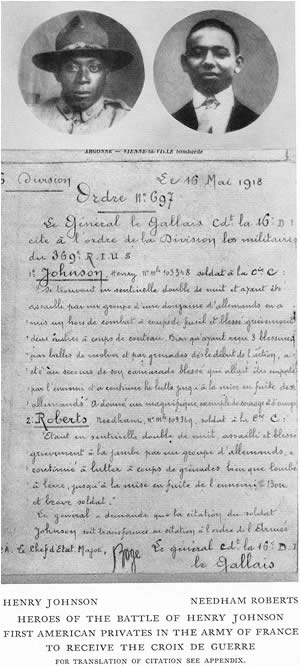 ARGONNE — VIENNE-le-VILLE bombardé
Division Le 16 Mai 1918
Ordre No 697
Le Général le Gallais Cdt la 16e D.I
cite à l'ordre de la Division les militaires
du 369e R.I.U.S
1o Johnson Henry No mle 103348 soldat à la Cie C :
"Se trouvant en sentinelle double de nuit et ayant été
assailli par un groupe d'une douzaine d'allemands en a
mis un hors de combat à coups de fusil et blessé grièvement
deux autres à coups de couteau. Bien qu'ayant reçu 3 blessures
par balles de revolver et par grenades dès le début de l'action, a
été au secours de son camarade blessé qui allait être emporté
par l'ennemi et a continué la lutte jusqu'à la mise en fuite des
allemands. A donné un magnifique exemple de courage et d'énergie
2o Roberts Needham, No mle soldat à la Cie C :
"Etant en sentinelle double de nuit, assailli et blessé
grièvement à la jambe par un groupe d'allemands, a
continué à lutter à coups de grenades bien que tombé
à terre, jusqu'à la mise en fuite de l'ennemi. Bon
et brave soldat."
Le général a demandé que la citation du soldat
Johnson soit transformée en citation à l'ordre de l'Armée
Le Chef d'Etat Major, Le général Cdt la 16e D.I
le Gallais
HENRY JOHNSON NEEDHAM ROBERTS
HEROES OF THE BATTLE OF HENRY JOHNSON
FIRST AMERICAN PRIVATES IN THE ARMY OF FRANCE
TO RECEIVE THE CROIX DE GUERRE
FOR TRANSLATION OF CITATION SEE APPENDIX.